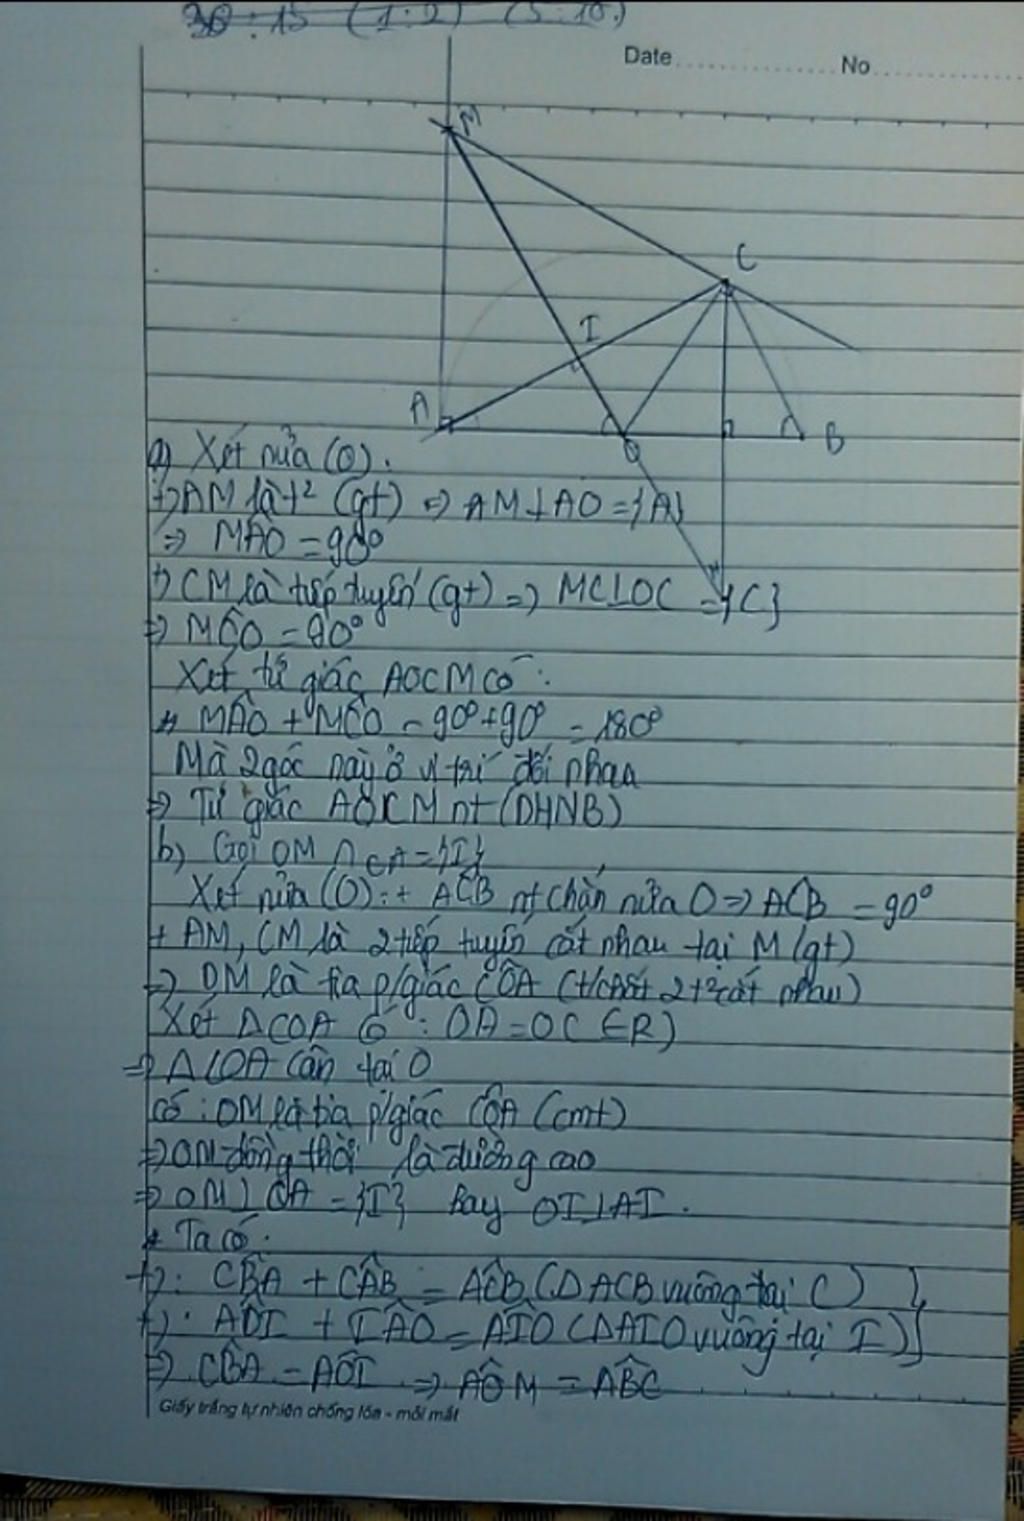 30 : 15 (1:2) (5:10)
Date No
M
C
I
A
O
B
a) Xét nửa (O).
+) AM là t² (gt) => AM ⊥ AO = {A}
=> MÂO = 90°
+) CM là tiếp tuyến (gt) => MC ⊥ OC = {C}
=> MĈO = 90°
Xét tứ giác AOCM có :
+) MÂO + MĈO = 90° + 90° = 180°
Mà 2 góc này ở vị trí đối nhau
=> Tứ giác AOCM nt (DHNB)
b) Gọi OM ∩ CA = {I}
Xét nửa (O): + AĈB nt chắn nửa O => AĈB = 90°
+ AM, CM là 2 tiếp tuyến cắt nhau tại M (gt)
=> OM là tia p/giác CÔA (t/chất 2 t² cắt nhau)
Xét ΔCOA có : OA = OC (=R)
=> ΔCOA cân tại O
có : OM là tia p/giác CÔA (cmt)
=> OM đồng thời là đường cao
=> OM ⊥ CA = {I} hay OI ⊥ AI.
* Ta có :
+) : CB̂A + CÂB = AĈB (ΔACB vuông tại C) }
+) : AÔI + IÂO = AÎO (ΔAIO vuông tại I) }
=> CB̂A = AÔI => AÔM = AB̂C
Giấy trắng tự nhiên chống lóa - mỏi mắt